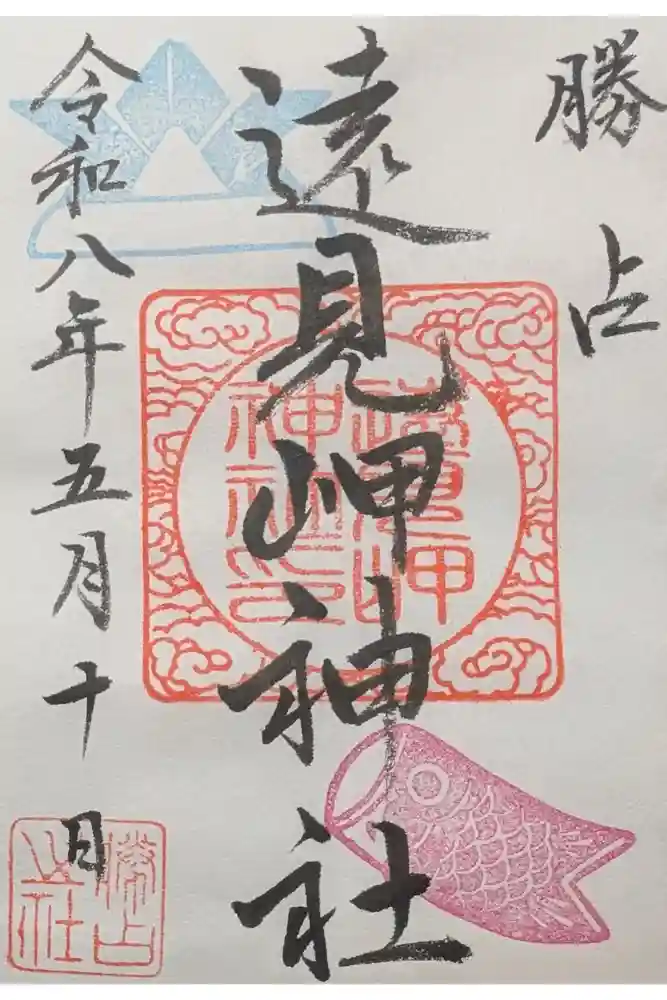 勝占
遠見岬神社
令和八年五月十日
遠見岬
神社印
勝占
之社